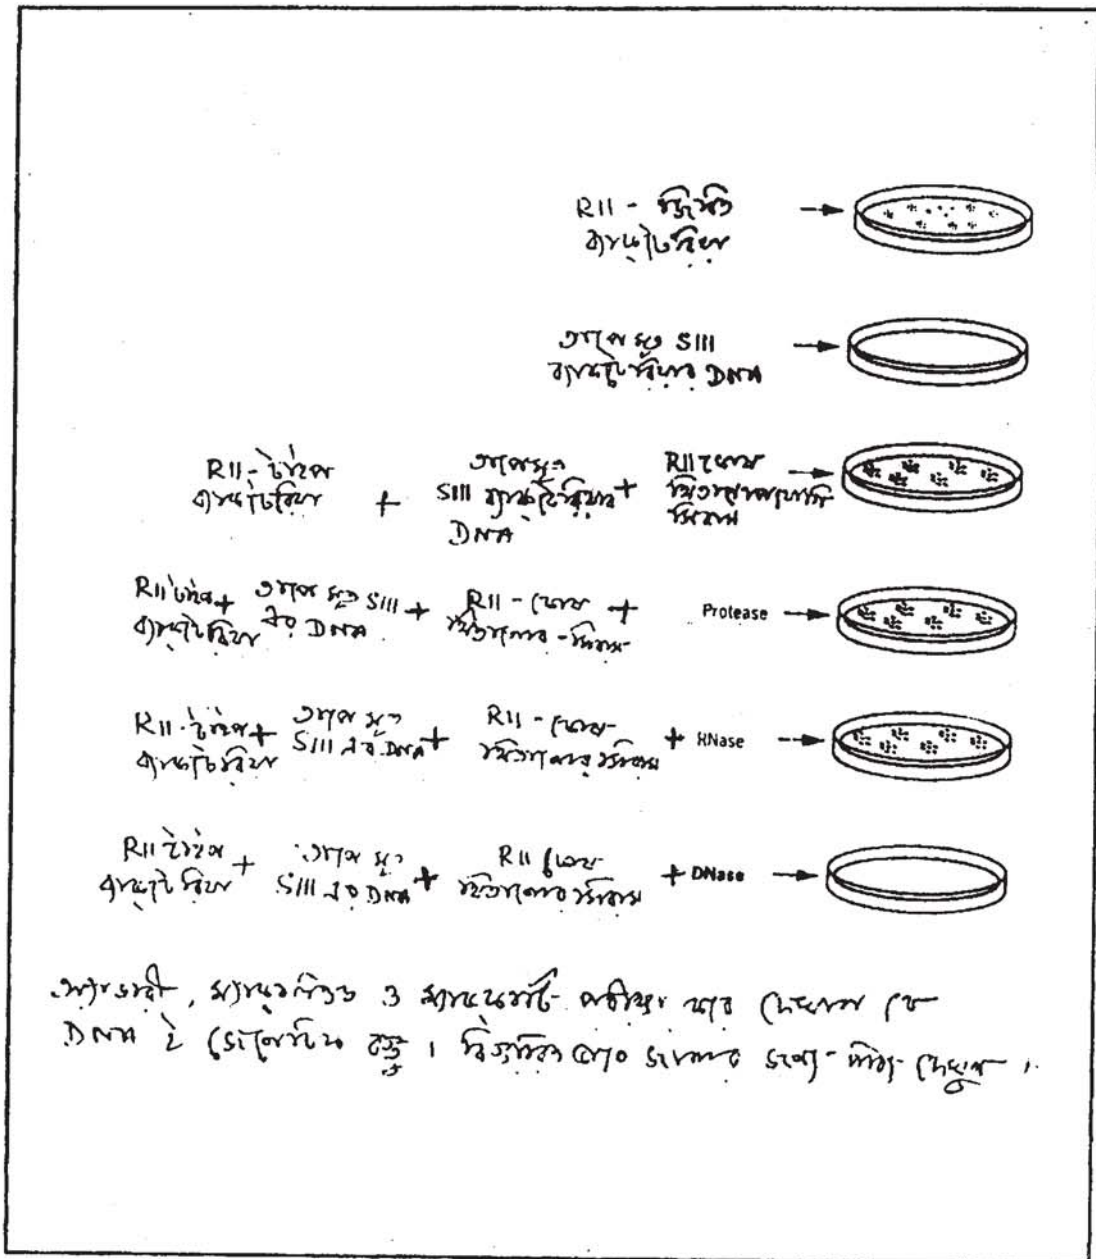 RII - জীবিত →
ব্যাকটেরিয়া
তাপে মৃত SIII →
ব্যাকটেরিয়ার DNA
RII - টাইপ ব্যাকটেরিয়া + তাপে মৃত SIII ব্যাকটেরিয়ার DNA + RII কোষ সিরাম →
RII টাইপ ব্যাকটেরিয়া + তাপে মৃত SIII এর DNA + RII - কোষ থিতানোর সিরাম + Protease →
RII টাইপ ব্যাকটেরিয়া + তাপে মৃত SIII এর DNA + RII - কোষ থিতানোর সিরাম + RNase →
RII টাইপ ব্যাকটেরিয়া + তাপে মৃত SIII এর DNA + RII কোষ থিতানোর সিরাম + DNase →
অ্যাভারী, ম্যাকলিওড ও ম্যাককার্টি পরীক্ষা করে দেখালেন যে
DNA ই জেনেটিক বস্তু। বিস্তারিত জানার জন্য পাঠ্য দেখুন।